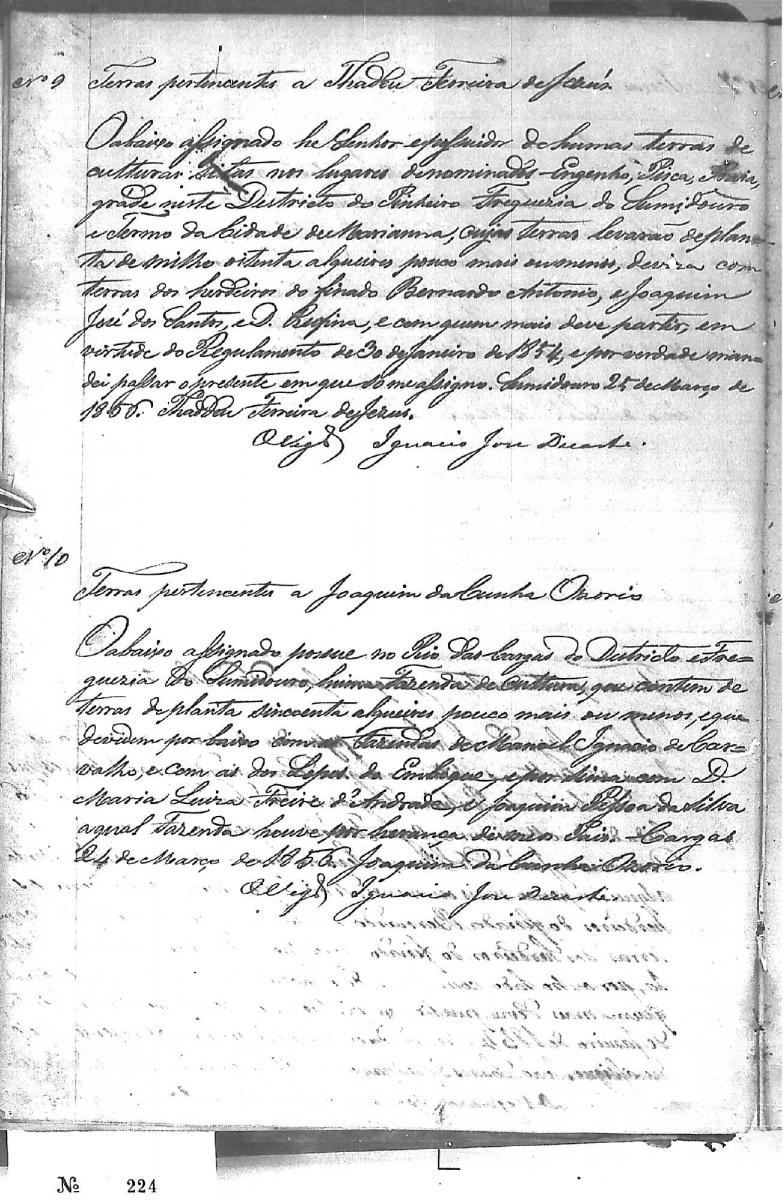 Nº 9 Terras pertencentes a Thadeu Ferreira de Jesús
O abaixo assignado he Senhor e possuidor de humas terras de
culturas sitas nos lugares denominados Engenho, Pisca,
grade neste Districto do Pinheiro Freguezia do Sumidouro
e Termo da Cidade de Marianna, cujas terras levarão de plan-
ta de milho oitenta alqueires pouco mais ou menos, deviza com
terras dos herdeiros do finado Bernardo Antonio, e Joaquim
José dos Santos, e D. Rufina, e com quem mais deve partir, em
virtude do Regulamento de 30 de Janeiro de 1854, e por verdade man-
dei passar o presente em que so me assigno. Sumidouro 25 de Março de
1856. Thadeu Ferreira de Jezus.
O Vigº Ignacio Jose Duarte.
Nº 10
Terras pertencentes a Joaquim da Cunha Ozorio
O abaixo assignado possue no Rio das Cargas do Districto e Fre-
guezia do Sumidouro, huma Fazenda de cultura, que contem de
terras de planta sincoenta alqueires pouco mais ou menos, e que
devedem por baixo com as Fazendas de Manoel Ignacio de Car-
valho, e com as dos Lopes do Emboque, e por sima com D.
Maria Luiza Freire d'Andrade, e Joaquim Pessoa da Silva
a qual Fazenda houve por herança de meos Pais. Cargas
24 de Março de 1856. Joaquim da Cunha Ozorio.
O Vigº Ignacio Jose Duarte.
Nº 224